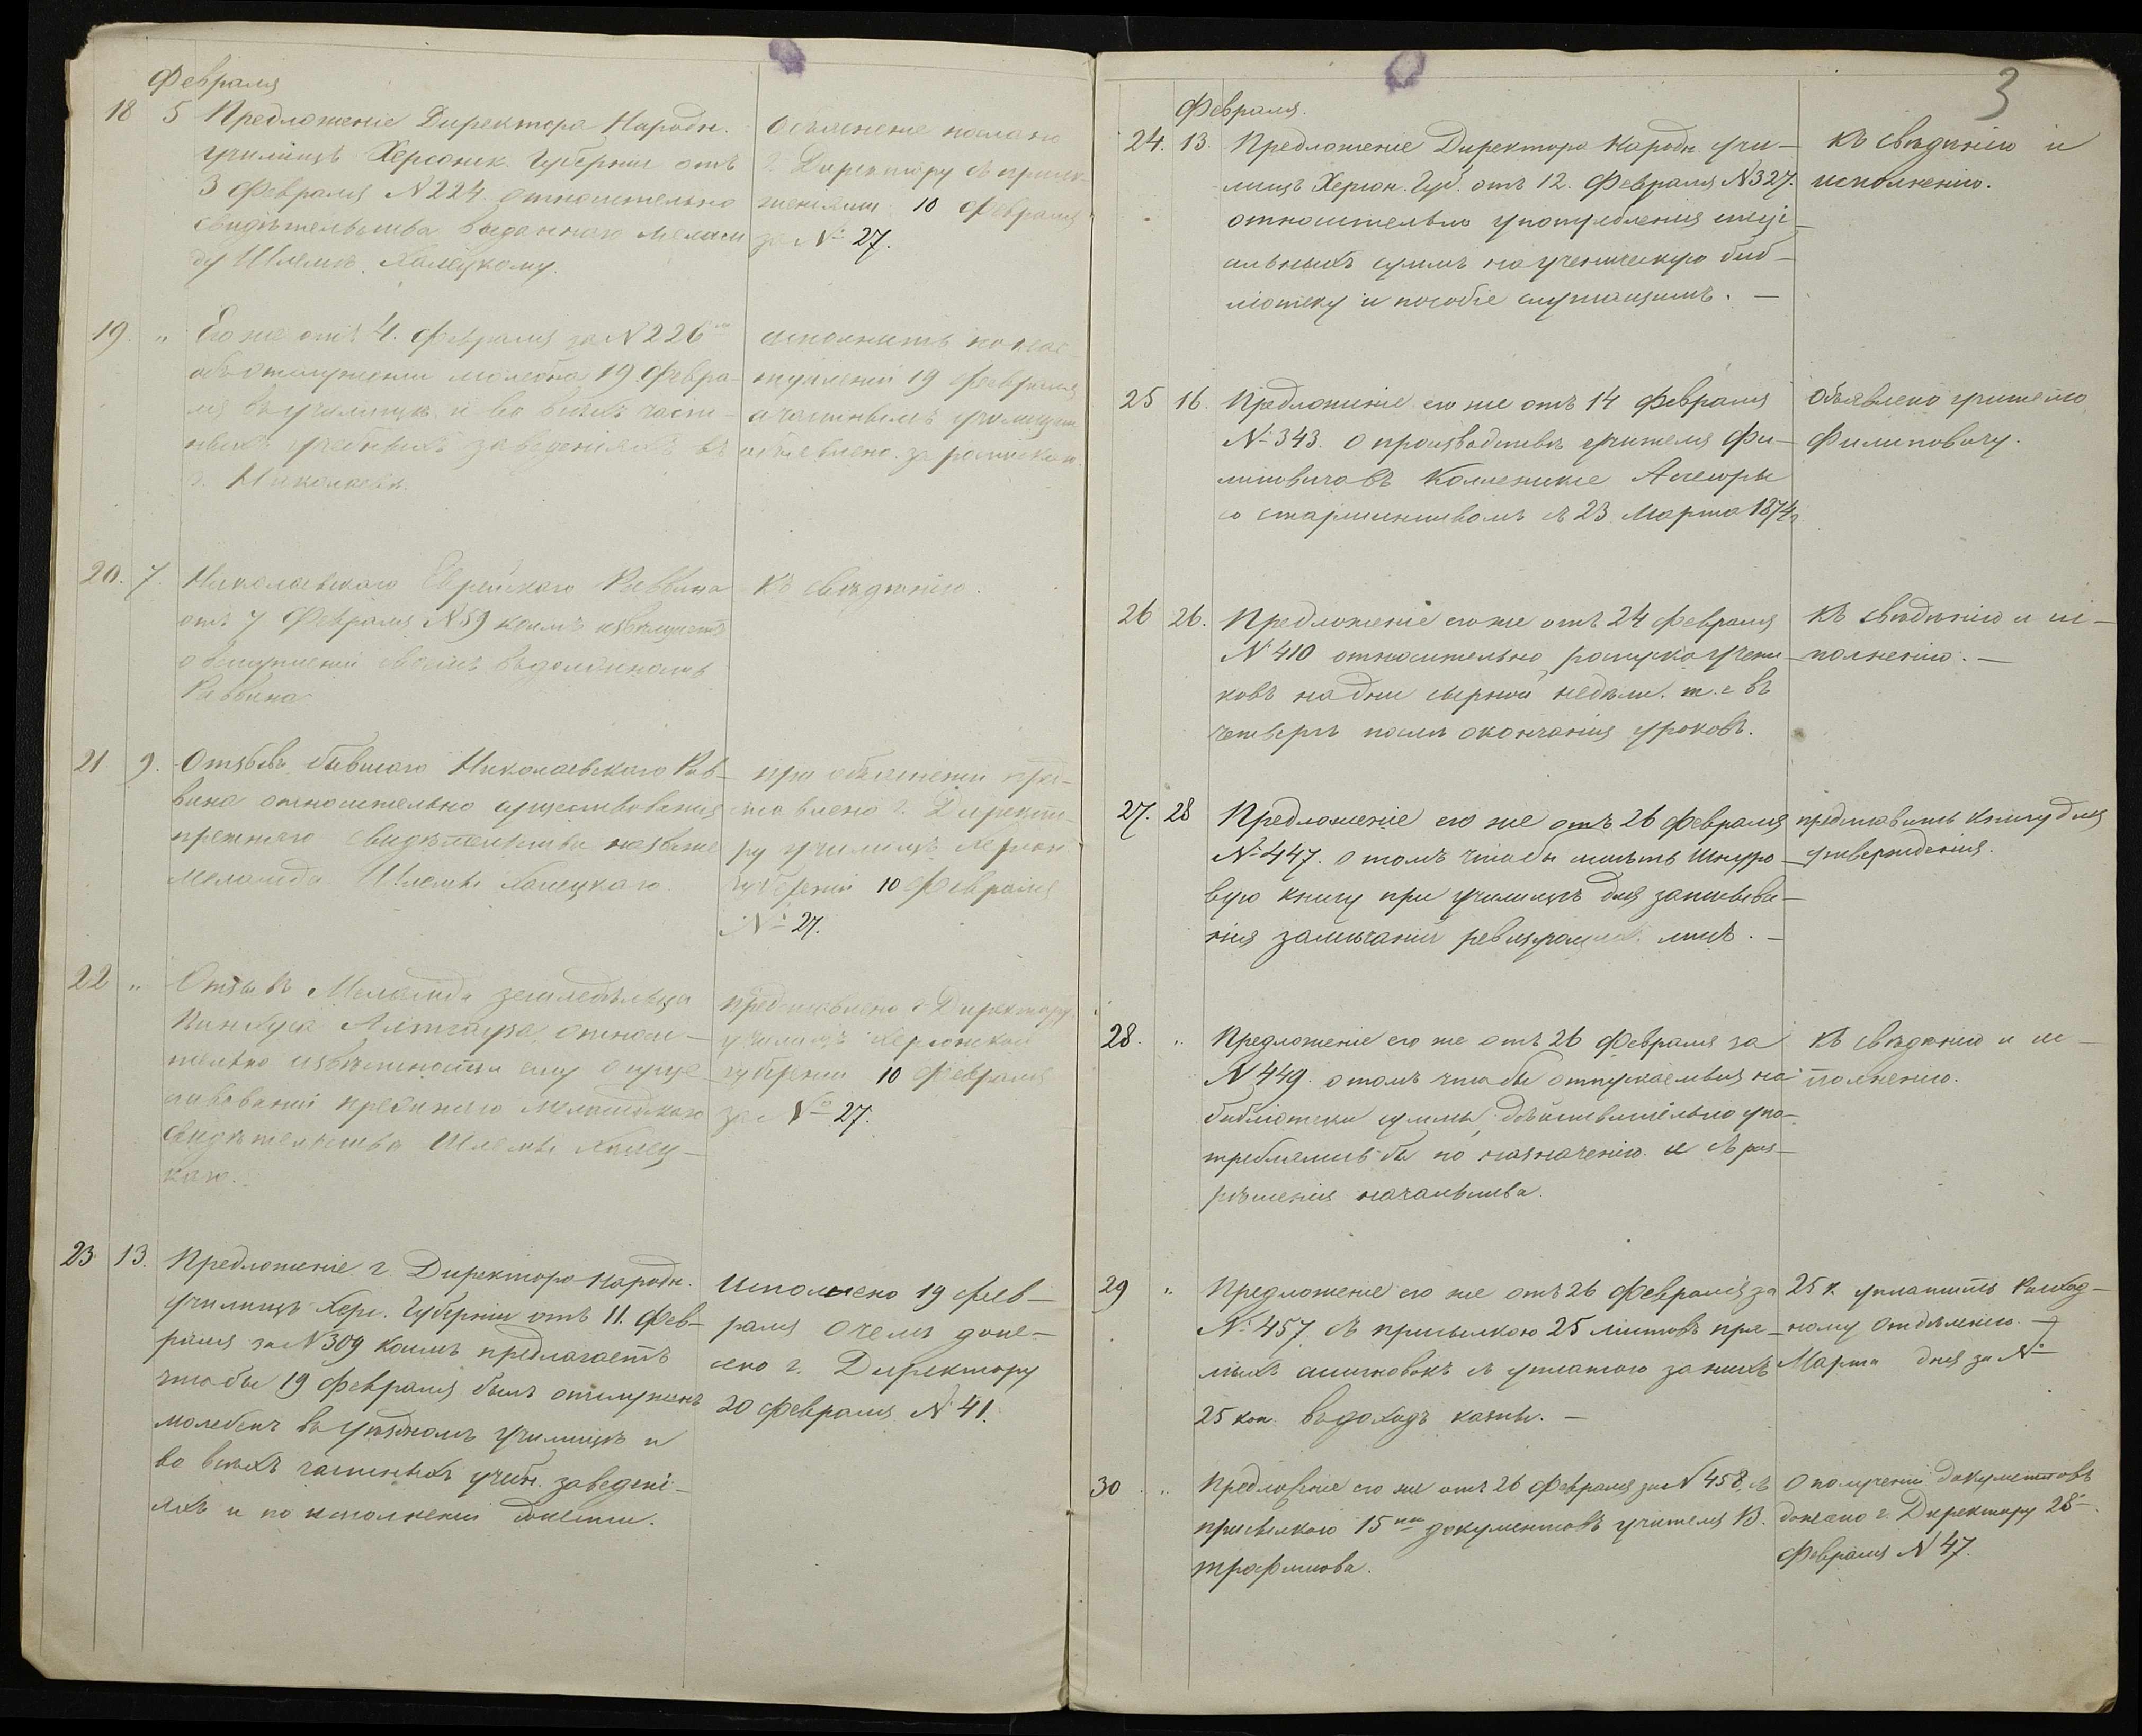 Февраля
18 5 Предложеніе Директора Народн.
училищъ Херсонск. Губерніи отъ
3 Февраля N 224 относительно
свидѣтельства выданнаго мелам
ду Шлемѣ Халецкому.
Объясненіе послано
г. Директору съ прило
женіями 10 Февраля
за № 27.
19. " Его же отъ 4. Февраля за N 226
объ отслуженіи молебна 19 Февра-
ля въ училищѣ и во всѣхъ част-
ныхъ учебныхъ заведеніяхъ въ
г. Николаевѣ.
исполнить по нас-
тупленіи 19 Февраля
а частнымъ училищам
объявлено за росписк.
20. 7. Николаевскаго Еврейскаго Раввина
отъ 7 Февраля N 59 коимъ извѣщаетъ
о вступленіи своемъ въ должность
Раввина
Къ свѣдѣнію.
21 9. Отзывъ бывшаго Николаевскаго Рав-
вина относительно существованія
прежняго свидѣтельства
меламда Шлемы Халецкаго.
при объясненіи пред-
ставлено г. Директо-
ру училищъ Херсон.
губерніи 10 Февраля
№ 27.
22 " Отзывъ Меламда земледѣльца
Пинхуса относи-
тельно извѣстности ему о суще
ствованіи прежняго меламдскаго
свидѣтельства Шлемы Халец-
каго.
представлено г. Директору
училищъ Херсонской
губерніи 10 Февраля
за № 27.
23 13. Предложеніе г. Директора народн.
училищъ Херс. Губерніи отъ 11. Фев-
раля за N 309 коимъ предлагаетъ
чтобы 19 Февраля былъ отслуженъ
молебенъ въ уѣздномъ училищѣ и
во всѣхъ частныхъ учебн. заведені-
яхъ и по исполненіи донести.
Исполнено 19 Фев-
раля о чемъ доне-
сено г. Директору
20 Февраля N 41.
3
Февраля.
24. 13. Предложеніе Директора Народн. учи-
лищъ Херсон. Губ. отъ 12. Февраля N 327.
относительно употребленія спеці-
альныхъ суммъ на ученическую биб-
ліотеку и пособіе служащимъ. —
Къ свѣдѣнію и
исполненію.
25 16. Предложеніе его же отъ 14 Февраля
№ 343. о производствѣ учителя Фи-
липовича въ Коллежскіе Асессоры
со старшинствомъ съ 23 Марта 1874 г
Объявлено учителю
Филиповичу.
26 26. Предложеніе его же отъ 24 Февраля
N 410 относительно роспуска учени-
ковъ на дни сырной недѣли. т. е въ
четвергъ послѣ окончанія уроковъ.
Къ свѣдѣнію и ис-
полненію. —
27. 28 Предложеніе его же отъ 26 Февраля
№ 447. о томъ чтобы имѣть Шнуро-
вую книгу при училищѣ для записыва-
нія замѣчаній ревизующ. лицъ. —
представить книгу для
утвержденія.
28. " Предложеніе его же отъ 26 Февраля за
N 449. о томъ чтобы отпускаемыя на
библіотеки суммы дѣйствительно упо-
треблялись бы по назначенію и съ раз-
рѣшенія начальства.
Къ свѣдѣнію и ис-
полненію.
29 " Предложеніе его же отъ 26 Февраля за
№ 457 съ присылкою 25 листовъ пря-
мыхъ ассигновокъ съ уплатою за нихъ
25 коп. въ доходъ казны. —
25 к. уплатить Расход-
ному Отдѣленію. —
Марта дня за №
30 " Предложеніе его же отъ 26 Февраля за N 458, съ
присылкою 15 ти документовъ учителя В.
Трофимова.
О полученіи документовъ
донесено г. Директору 28
Февраля N 47.